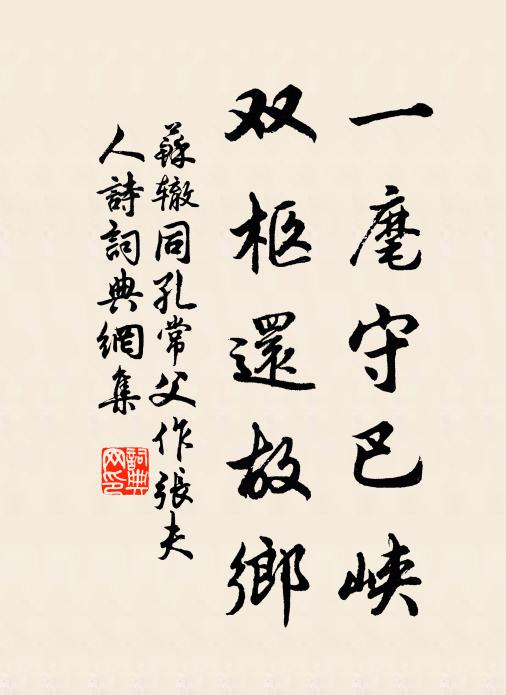 一麾守巴峡
双柩還故鄉
蘇辙同孔常父作張夫
人詩詞典網集
詞典网印